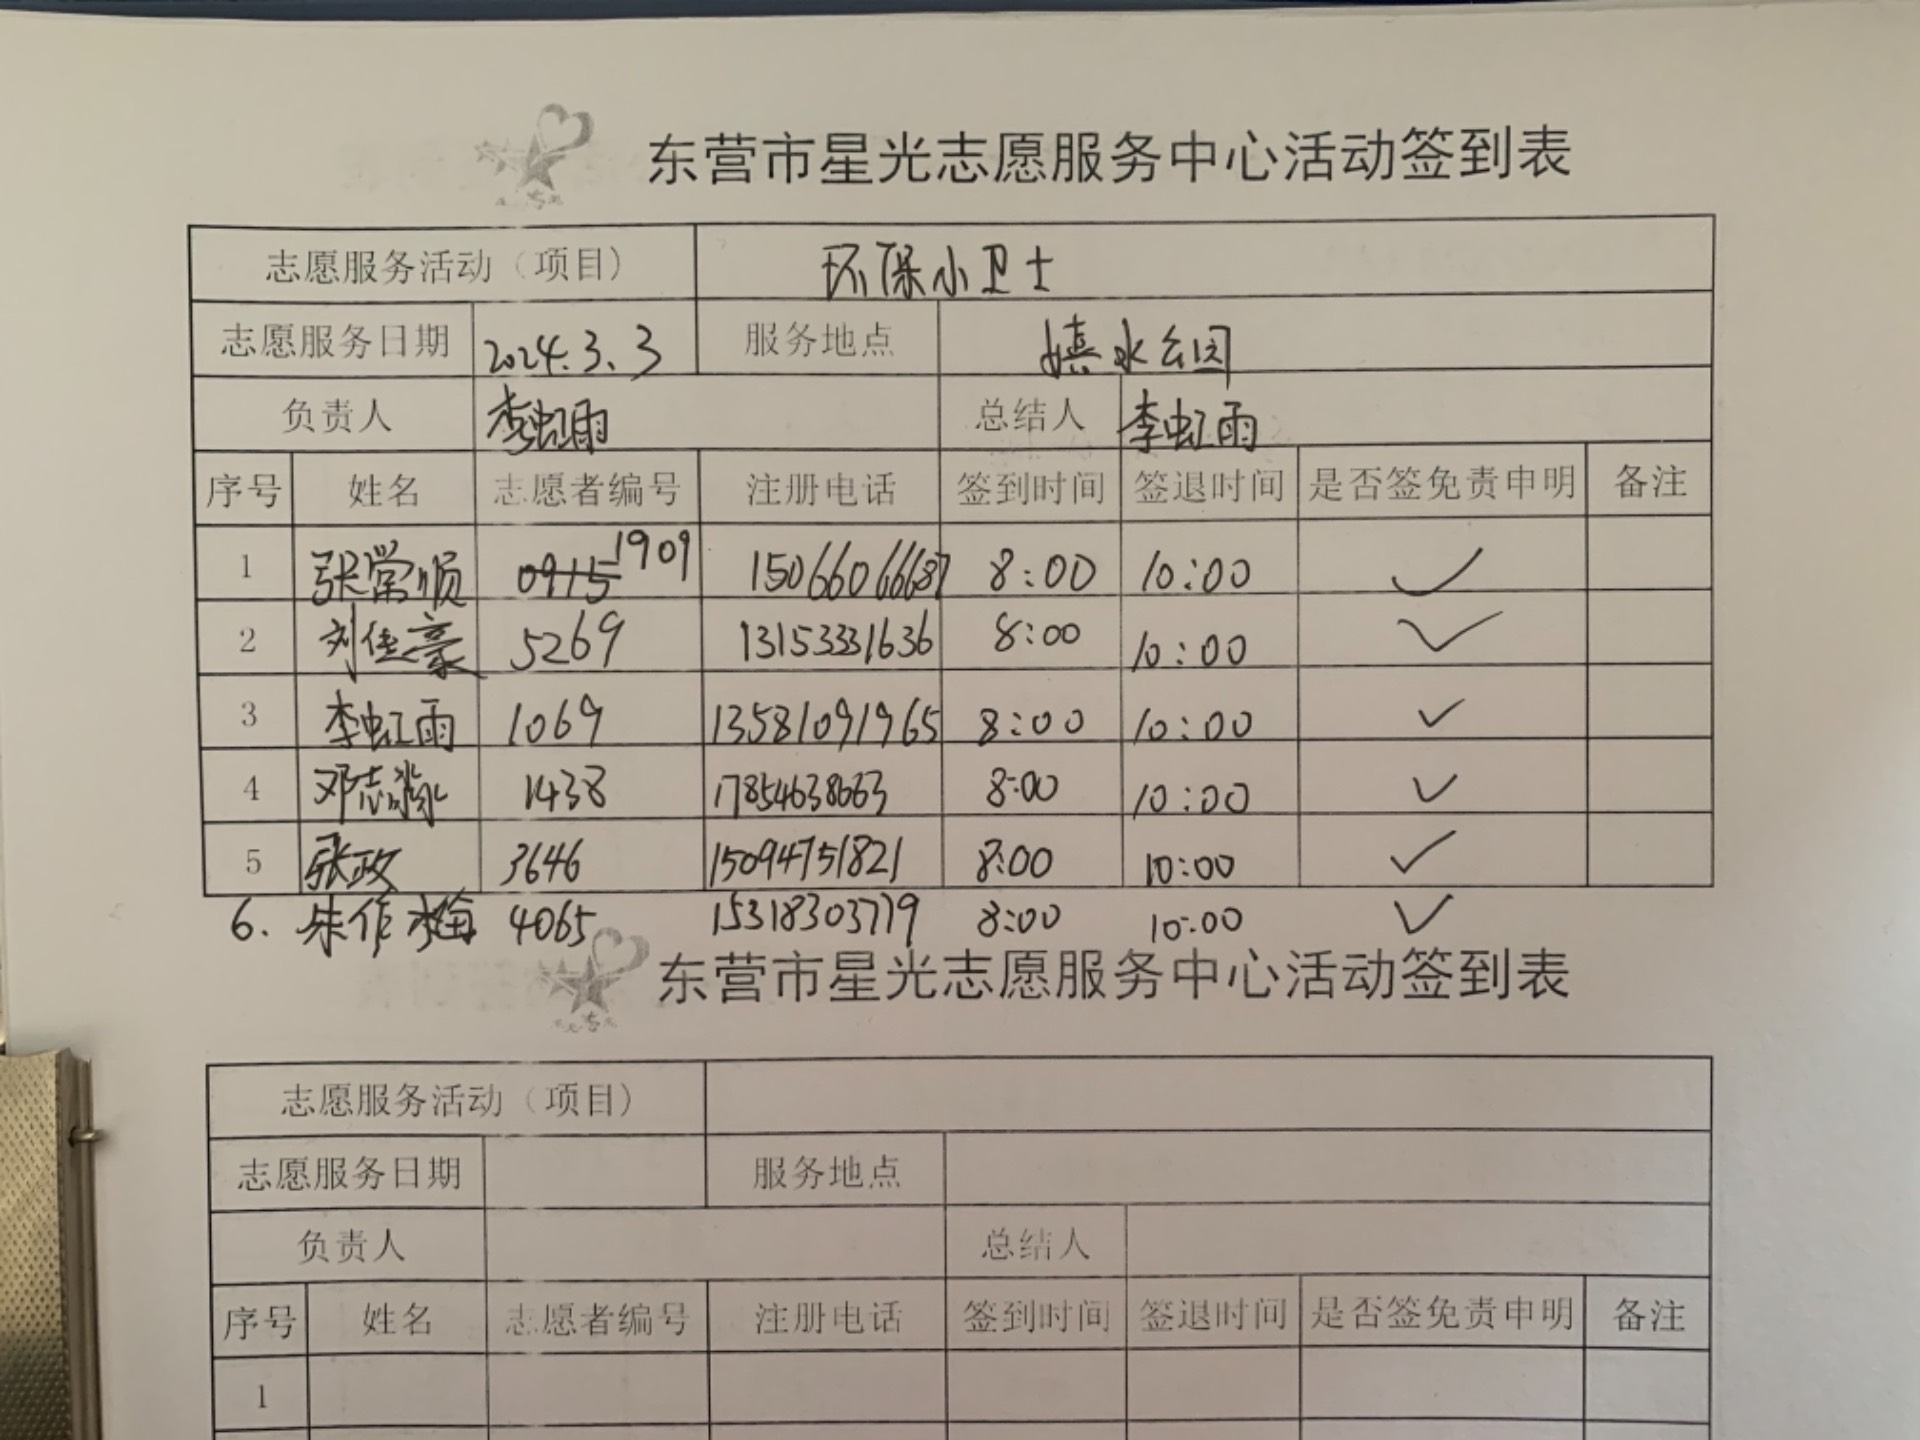 东营市星光志愿服务中心活动签到表
志愿服务活动（项目） 环保小卫士
志愿服务日期 2024.3.3 服务地点 水公园
负责人 李虹雨 总结人 李虹雨
序号 姓名 志愿者编号 注册电话 签到时间 签退时间 是否签免责申明 备注
1 张学顺 0915 1909 8:00 10:00 ✓
2 刘佳豪 5269 13153331636 8:00 10:00 ✓
3 李虹雨 1069 13581091965 8:00 10:00 ✓
4 邓志淼 1438 17854638663 8:00 10:00 ✓
5 张政 3646 15094751821 8:00 10:00 ✓
6. 朱作海 4065 15318303779 8:00 10:00 ✓
东营市星光志愿服务中心活动签到表
志愿服务活动（项目）
志愿服务日期 服务地点
负责人 总结人
序号 姓名 志愿者编号 注册电话 签到时间 签退时间 是否签免责申明 备注
1